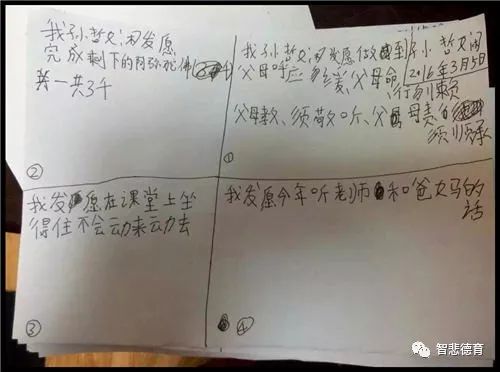 我孙哲 发愿
完成剩下的阿弥陀佛
一共3千
②
我孙哲 发愿做到
孙 哲
2016年3月5日
父母呼应勿缓、父母命
行勿懒
父母教、须敬听、父母责
须顺承
①
我发愿在课堂上坐
得住不会动来动去
③
我发愿今年听老师和爸妈的
话
④
智悲德育